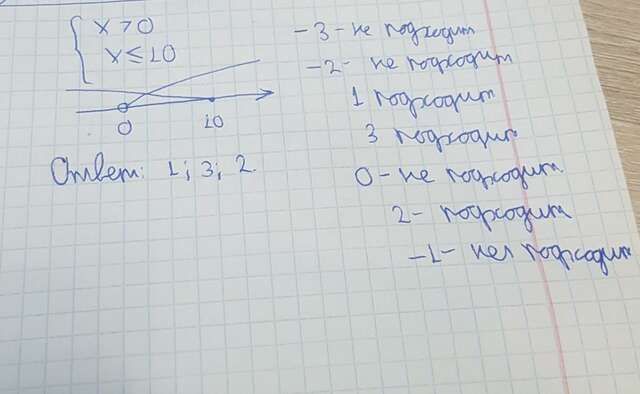 x > 0
x ≤ 10
0 10
Ответ: 1; 3; 2.
-3 - не подходит
-2 - не подходит
1 подходит
3 подходит
0 - не подходит
2 - подходит
-1 - не подходит